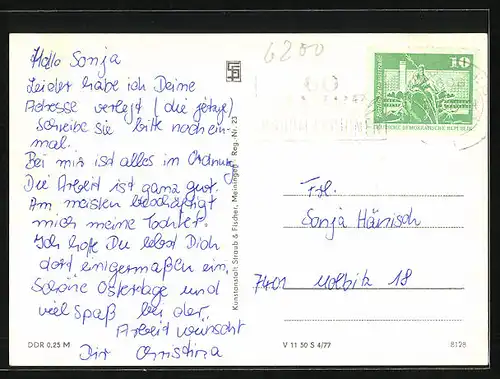 Hallo Sonja
Leider habe ich Deine
Adresse verlegt (die jetzige)
schreibe sie bitte noch ein
mal.
Bei mir ist alles in Ordnung
Die Arbeit ist ganz gut.
Am meisten beschäftigt
mich meine Tochter.
Ich hoffe Du lebst Dich
dort einigermaßen ein.
Schöne Ostertage und
viel Spaß bei der
Arbeit wünscht
Dir Christina
DDR 0,25 M
Kunstanstalt Straub & Fischer, Meiningen Reg.-Nr. 23
6200
10
DEUTSCHE DEMOKRATISCHE REPUBLIK
Frl.
Sonja Hänisch
7401 Molbitz 18
V 11 50 S 4/77
8128